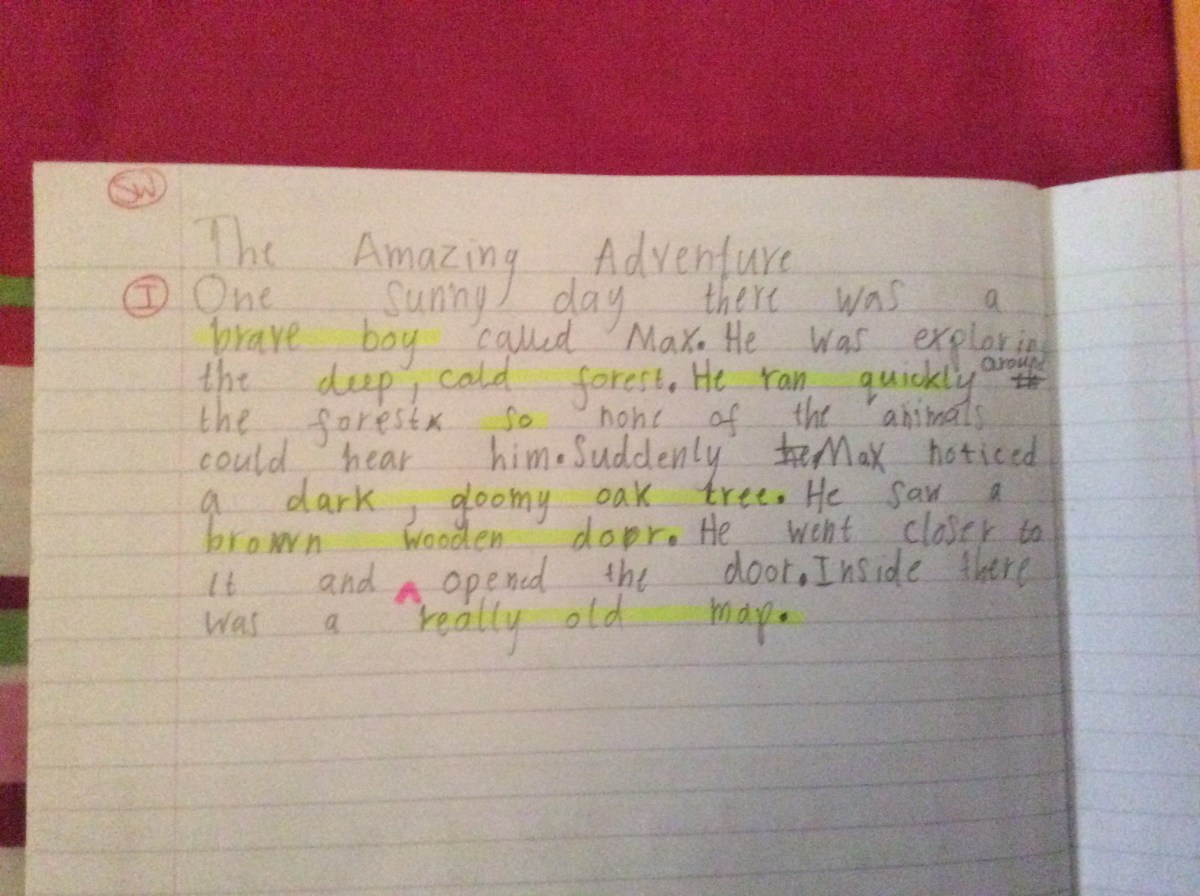 SW
The Amazing Adventure
I One sunny day there was a
brave boy called Max. He was explorin
the deep, cold forest. He ran quickly around
the forest so none of the animals
could hear him. Suddenly Max noticed
a dark, gloomy oak tree. He saw a
brown wooden door. He went closer to
it and opened the door. Inside there
was a really old map.